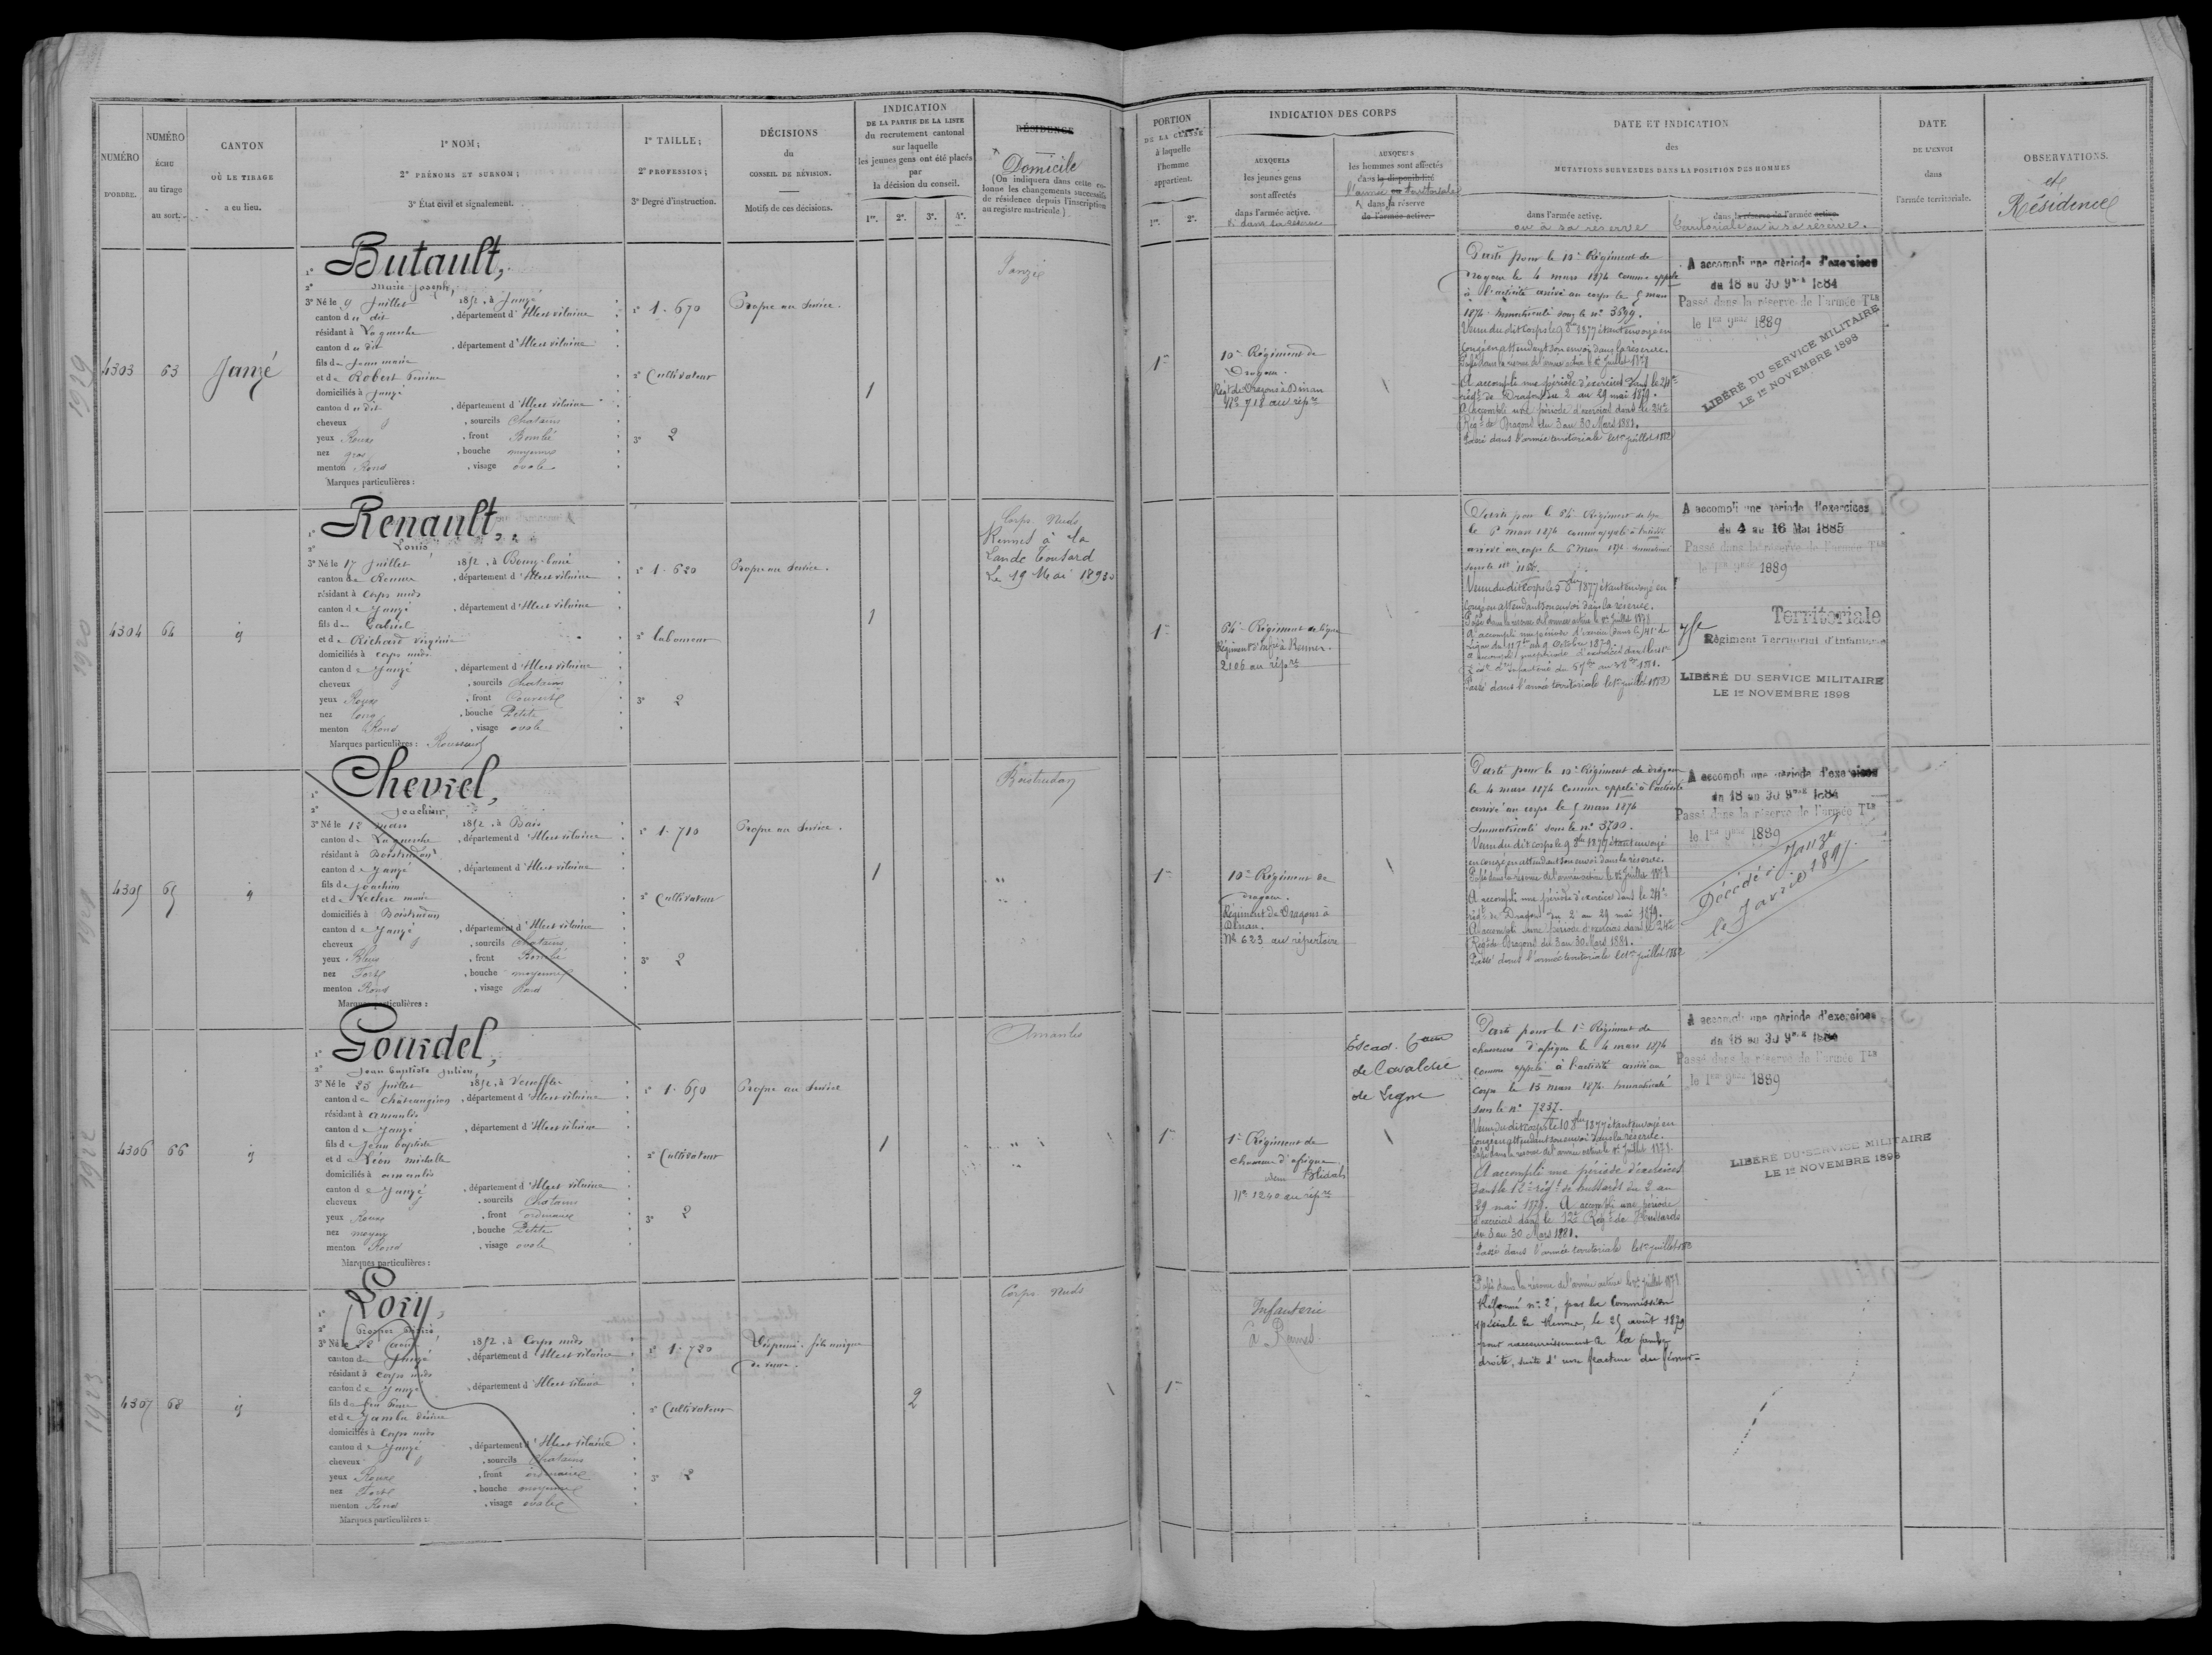 NUMÉRO
D'ORDRE.
NUMÉRO
ÉCHU
au tirage
au sort.
CANTON
OÙ LE TIRAGE
a eu lieu.
1° NOM;
2° PRÉNOMS ET SURNOM;
3° État civil et signalement.
1° TAILLE;
2° PROFESSION;
3° Degré d'instruction.
DÉCISIONS
du
CONSEIL DE RÉVISION.
Motifs de ces décisions.
INDICATION
DE LA PARTIE DE LA LISTE
du recrutement cantonal
sur laquelle
les jeunes gens ont été placés
par
la décision du conseil.
1re. 2e. 3e. 4e.
RÉSIDENCE
Domicile
(On indiquera dans cette co-
lonne les changements successifs
de résidence depuis l'inscription
au registre matricule)
PORTION
DE LA CLASSE
à laquelle
l'homme
appartient.
1re. 2e.
INDICATION DES CORPS
AUXQUELS
les jeunes gens
sont affectés
dans l'armée active.
ou dans sa réserve
AUXQUELS
les hommes sont affectés
dans la disponibilité
l'armée territoriale
dans sa réserve
de l'armée active.
DATE ET INDICATION
des
MUTATIONS SURVENUES DANS LA POSITION DES HOMMES
dans l'armée active.
ou à sa réserve
dans la réserve de l'armée active.
territoriale ou à sa réserve.
DATE
DE L'ENVOI
dans
l'armée territoriale.
OBSERVATIONS.
et
Résidence
1929
4303
63
Janzé
1° Butault,
2° Marie Joseph,
3° Né le 9 Juillet 1852, à Janzé
canton du dit, département d'Ille et vilaine
résidant à Laguerche
canton du dit, département d'Ille et vilaine
fils de Jean marie
et de Robert
domiciliés à Janzé
canton du dit, département d'Ille et vilaine
cheveux, sourcils Chatains
yeux Roux, front Bombé
nez gros, bouche moyenne
menton Rond, visage ovale
Marques particulières :
1° 1. 670
2° Cultivateur
3° 2
Propre au Service.
1
Janzé
1re
10e Régiment de
Dragons.
Régt de Dragons à Dinan
No 718 au répre
Parti pour le 10e Régiment de
Dragons le 4 mars 1874 comme appelé
à l'activité arrivé au corps le 5 mars
1874. Immatriculé sous le no 3699.
Venu du dit Corps le 9 8bre 1877 étant envoyé en
congé en attendant son envoi dans la réserve.
Passé dans la réserve de l'armée active le 1er Juillet 1878
A accompli une période d'exercices dans le 24e
régt de Dragons du 2 au 29 mai 1879.
A accompli une période d'exercices dans le 24e
Régt de Dragons du 3 au 30 Mars 1881.
Passé dans l'armée territoriale le 1er juillet 1882
A accompli une période d'exercices
du 18 au 30 9bre 1884
Passé dans la réserve de l'armée Tle
le 1er 9bre 1889
LIBÉRÉ DU SERVICE MILITAIRE
LE 1er NOVEMBRE 1898
1920
4304
64
1° Renault,
2° Louis,
3° Né le 17 Juillet 1852, à Bourg-barré
canton de Rennes, département d'Ille et vilaine
résidant à Corps nuds
canton de Janzé, département d'Ille et vilaine
fils de Gabriel
et de Richard Virginie
domiciliés à corps nuds
canton de Janzé, département d'Ille et vilaine
cheveux, sourcils Chatains
yeux Roux, front Couvert
nez long, bouche Petite
menton Rond, visage ovale
Marques particulières :
1° 1. 620
2° laboureur
3° 2
Propre au Service.
1
Corps Nuds
Rennes à la
Lande Toutard
Le 19 Mai 1893
1re
64e Régiment de ligne
Régiment d'Infie à Rennes.
2106 au répre
le 6 mars 1874 comme appelé à l'activité
arrivé au corps le 6 mars 1874 Immatriculé
Venu du dit Corps le 5 8bre 1877 étant envoyé en
congé en attendant son envoi dans la réserve.
Passé dans la réserve de l'armée active le 1er Juillet 1878
Passé dans l'armée territoriale le 1er juillet 1882
A accompli une période d'exercices
du 4 au 16 Mai 1885
Passé dans la réserve de l'armée Tle
le 1er 9bre 1889
Territoriale
75e Régiment Territorial d'Infanterie
LIBÉRÉ DU SERVICE MILITAIRE
LE 1er NOVEMBRE 1898
1921
4305
65
1° Chevrel,
2° Joachim,
3° Né le 12 mars 1852, à Bais
canton de Laguerche, département d'Ille et vilaine
résidant à Boistrudan
canton de Janzé, département d'Ille et vilaine
fils de Joachim
et de Leclerc marie
domiciliés à Boistrudan
canton de Janzé, département d'Ille et vilaine
cheveux, sourcils Chatains
yeux Bleus, front Bombé
nez Fort, bouche moyenne
menton Rond, visage Rond
Marques particulières :
1° 1. 710
2° Cultivateur
3° 2
Propre au Service.
1
Boistrudan
1re
10e Régiment de
dragons.
Régiment de Dragons à
Dinan.
No 623 au répertoire
Parti pour le 10e Régiment de dragons
le 4 mars 1874 comme appelé à l'activité
arrivé au corps le 5 mars 1874
Immatriculé sous le no 3700.
Venu du dit corps le 9 8bre 1877 étant envoyé
en congé en attendant son envoi dans la réserve.
Passé dans la réserve de l'armée active le 1er Juillet 1878
A accompli une période d'exercices dans le 24e
régt de Dragons du 2 au 29 mai 1879.
A accompli une période d'exercices dans le 24e
Régt de Dragons du 3 au 30 Mars 1881.
Passé dans l'armée territoriale le 1er juillet 1882
A accompli une période d'exercices
du 18 au 30 9bre 1884
Passé dans la réserve de l'armée Tle
le 1er 9bre 1889
Décédé à Janzé
1922
4306
66
1° Gourdel,
2° Jean baptiste Julien,
3° Né le 25 Juillet 1852, à Venefles
canton de Chateaugiron, département d'Ille et vilaine
résidant à amanlis
canton de Janzé, département d'Ille et vilaine
fils de Jean baptiste
et de Léon michelle
domiciliés à amanlis
canton de Janzé, département d'Ille et vilaine
cheveux, sourcils Chatains
yeux Roux, front ordinaire
nez moyen, bouche Petite
menton Rond, visage ovale
Marques particulières :
1° 1. 690
2° Cultivateur
3° 2
Propre au Service
1
Amanlis
1re
1er Régiment de
chasseurs d'afrique
Blidah
No 1240 au répre
Escad.
de Cavalerie
de Ligne
Parti pour le 1er Régiment de
chasseurs d'afrique le 4 mars 1874
comme appelé à l'activité arrivé au
corps le 13 mars 1874 Immatriculé
sous le no 7237.
Venu du dit corps le 10 8bre 1877 étant envoyé en
congé en attendant son envoi dans la réserve.
Passé dans la réserve de l'armée active le 1er Juillet 1878.
A accompli une période d'exercices
dans le 12e régt de hussards du 2 au
29 mai 1879. A accompli une période
d'exercices dans le 12e Régt de Hussards
du 3 au 30 Mars 1881.
Passé dans l'armée territoriale le 1er juillet 1882
A accompli une période d'exercices
du 18 au 30 9bre 1884
Passé dans la réserve de l'armée Tle
le 1er 9bre 1889
LIBÉRÉ DU SERVICE MILITAIRE
LE 1er NOVEMBRE 1898
1923
4307
68
1° Lory,
2° Prosper Désiré,
3° Né le 22 1852, à Corps nuds
canton de Janzé, département d'Ille et vilaine
résidant à corps nuds
canton de Janzé, département d'Ille et vilaine
fils de feu
et de
domiciliés à Corps nuds
canton de Janzé, département d'Ille et vilaine
cheveux, sourcils Chatains
yeux Roux, front ordinaire
nez Fort, bouche moyenne
menton Rond, visage ovale
Marques particulières :
1° 1. 720
2° Cultivateur
3° 2
Dispensé. fils unique
de veuve.
2
Corps Nuds
1re
Infanterie
à Rennes
Passé dans la réserve de l'armée active le 1er Juillet 1878
Réformé no 2, par la Commission
spéciale de Rennes, le 25 août 1879
pour raccourcissement de la jambe
droite, suite d'une fracture du fémur